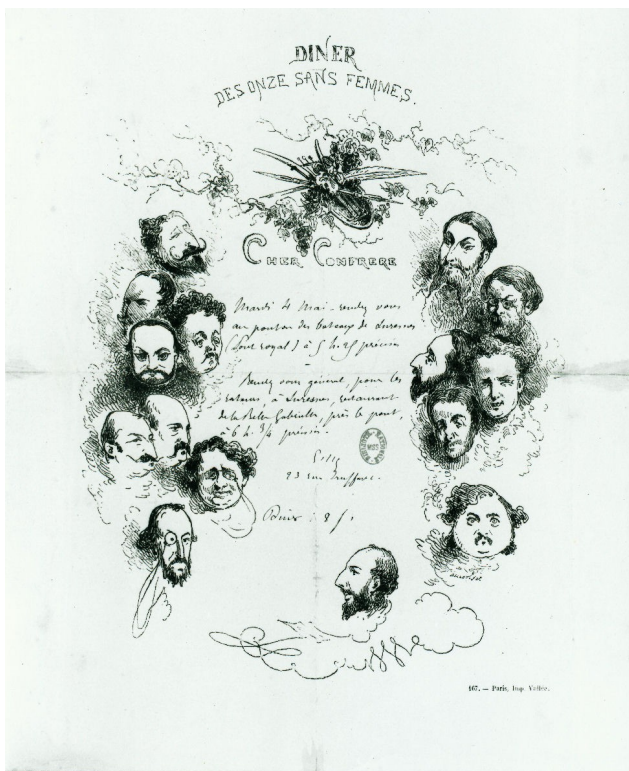 DINER
DES ONZE SANS FEMMES.
CHER CONFRERE
Mardi 4 Mai - rendez vous
au ponton des bateaux de Suresnes
(Pont royal) à 5 h. 25 précises
Rendez vous général, pour les
à Suresnes, restaurant
de la Belle Gabrielle, près le pont,
à 6 h. 3/4 précises.
23 rue
Prix : 8 f.
167. — Paris, Imp. Vallée.